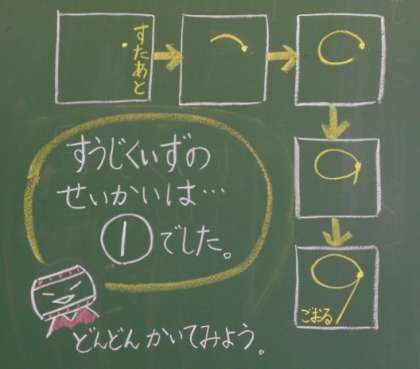 すたあと
すうじくいずの
せいかいは…
①でした。
ごおる
どんどんかいてみよう。